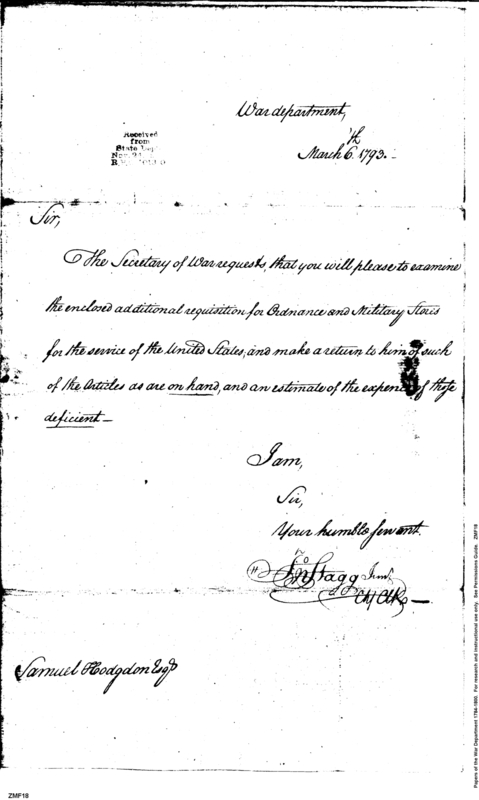 War department,
March 6th 1793.-
Received
from
State
Nov.
Sir,
The Secretary of War requests, that you will please to examine
the enclosed additional requisition for Ordnance and Military Stores
for the service of the United States, and make a return to him of such
of the Articles as are on hand, and an estimate of the expence of those
deficient—
I am,
Sir,
Your humble servant.
Jno Stagg Junr
Ch Clk—
Samuel Hodgdon Esqr
ZMF18
Papers of the War Department 1784-1800. For research and instructional use only. See Permissions Guide. ZMF18